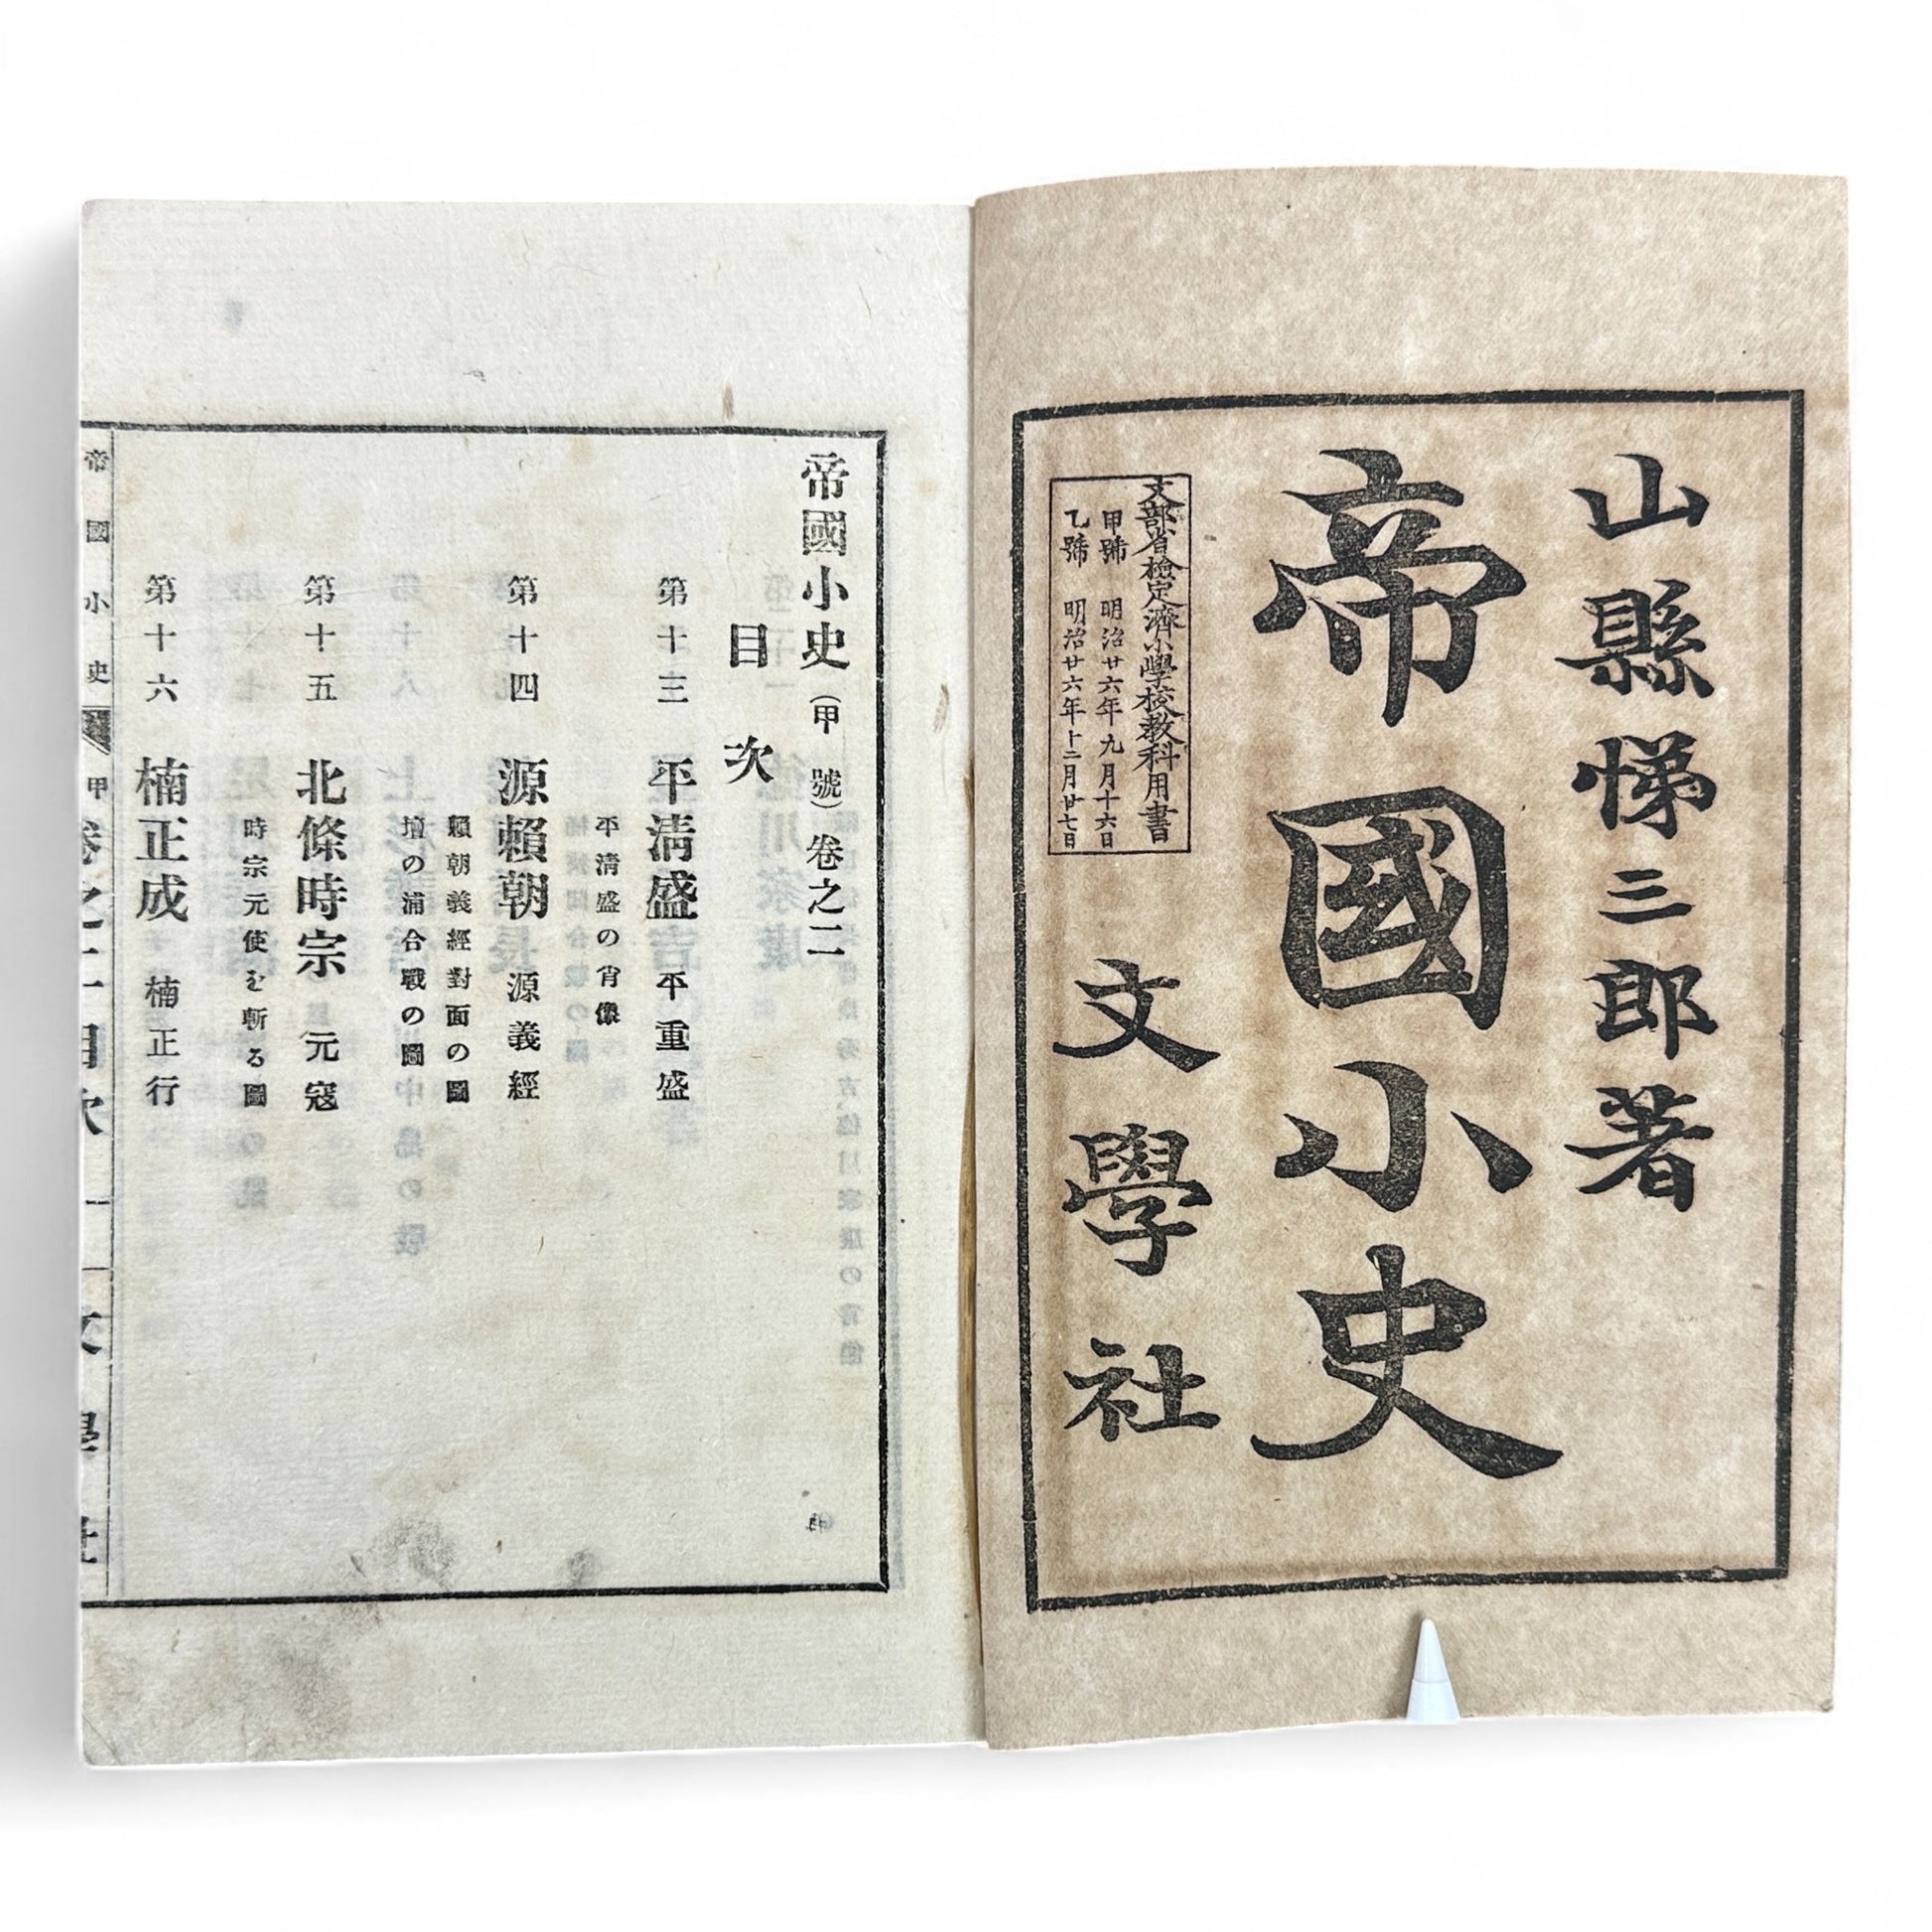 山縣悌三郎著
帝國小史
文部省檢定濟小學校教科用書
甲號 明治廿六年九月十六日
乙號 明治廿六年十二月廿七日
文學社
帝國小史(甲號)卷之二
目次
第十三 平淸盛 平重盛
平淸盛の肖像
第十四 源賴朝 源義經
賴朝義經對面の圖
壇の浦合戰の圖
第十五 北條時宗 元寇
時宗元使を斬る圖
第十六 楠正成 楠正行
帝國小史 甲卷之二目次 一 文學社